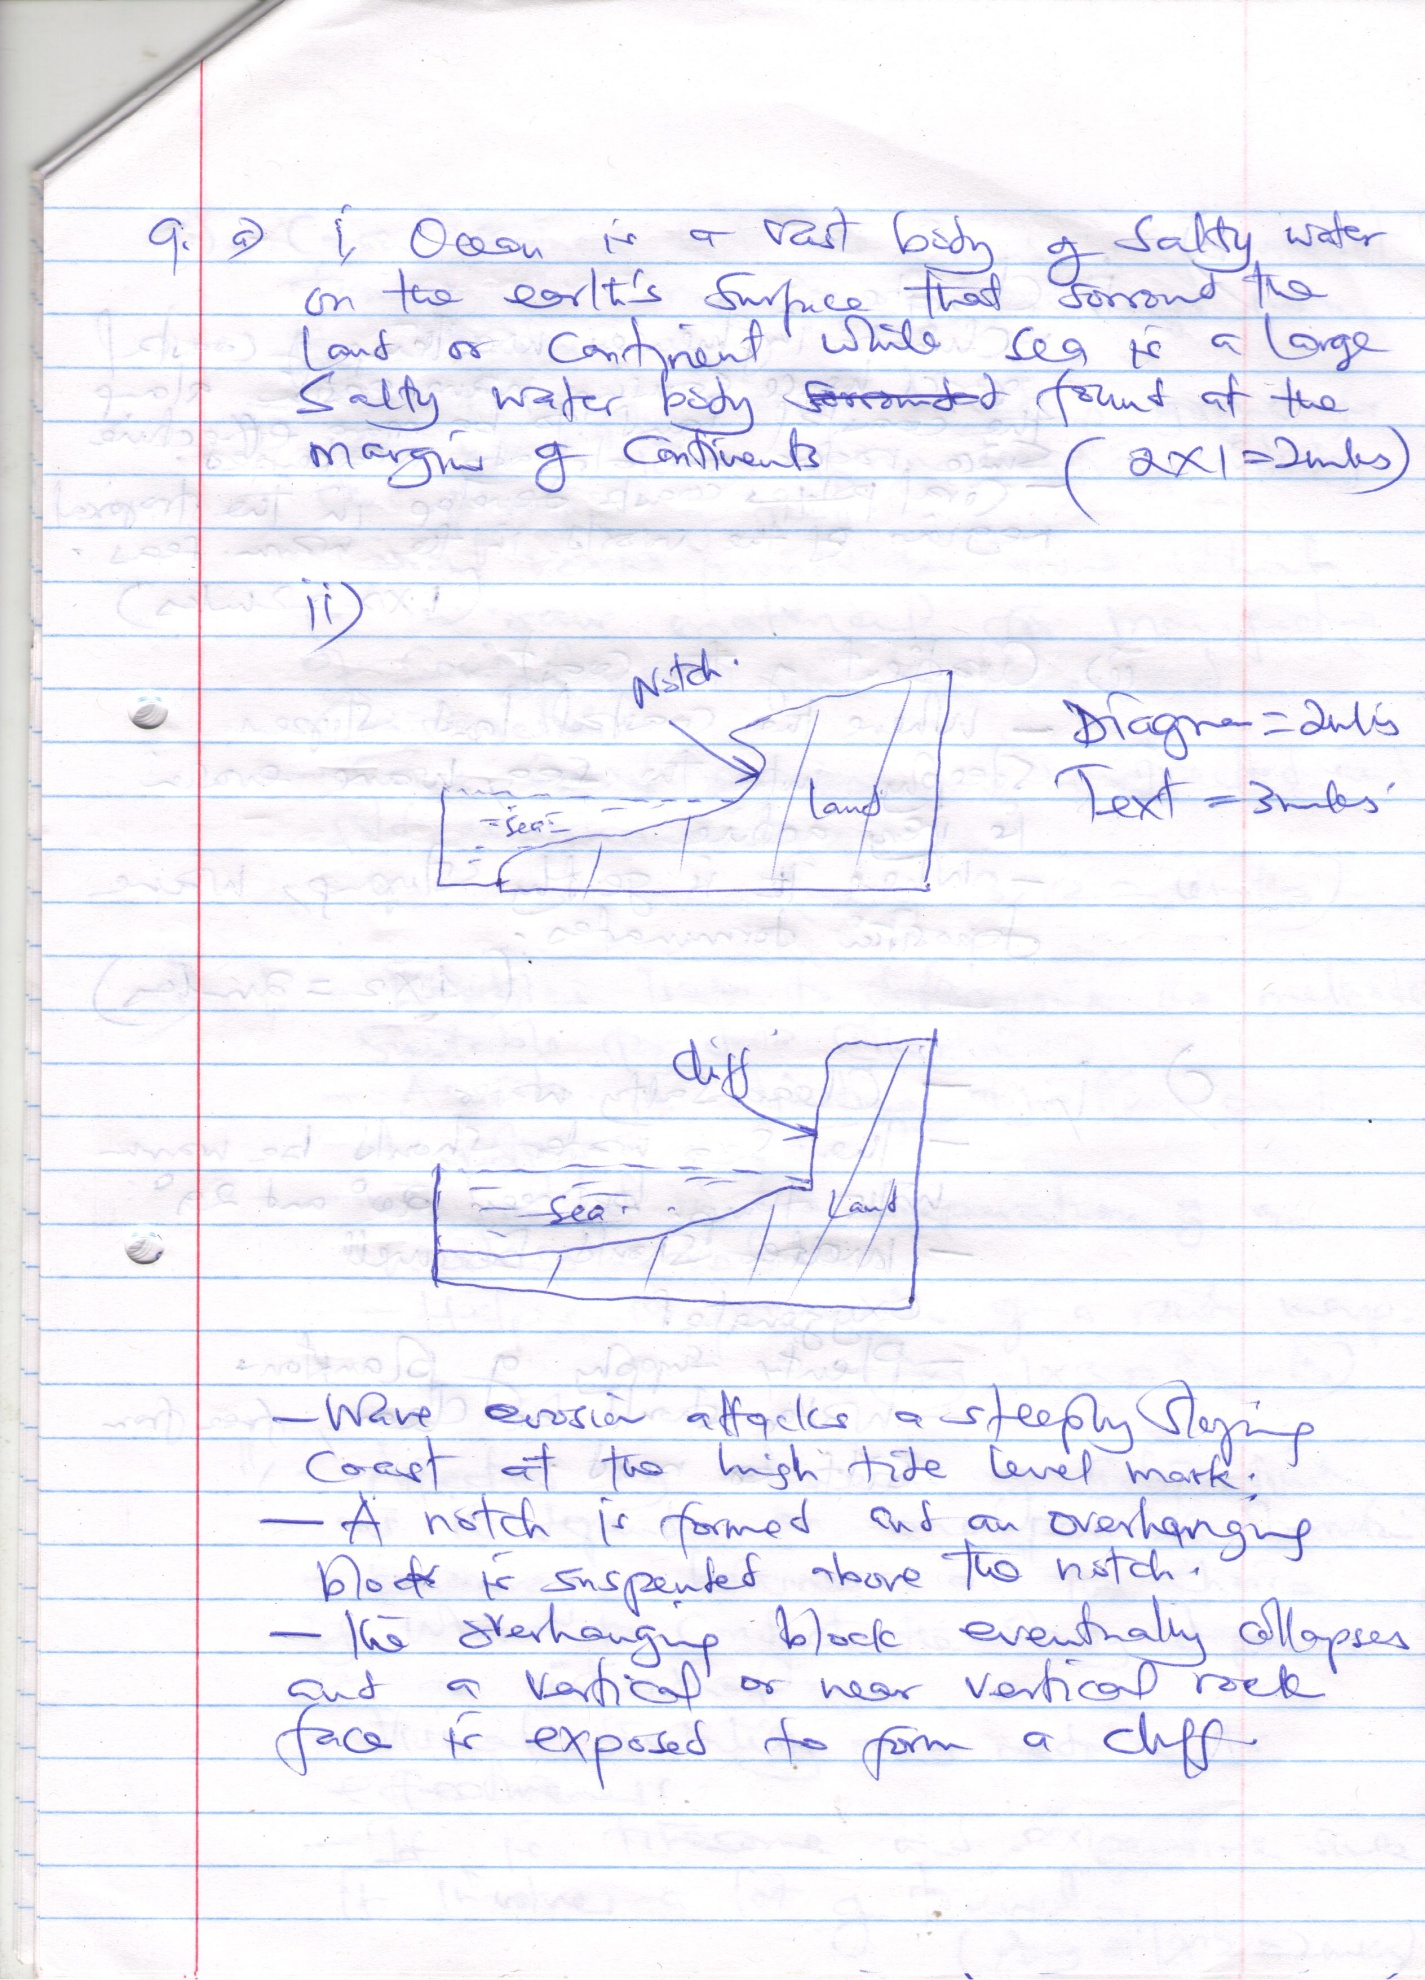 9. a) i, Ocean is a vast body of Salty water
on the earth's surface that sorround the
land or continent while sea is a large
Salty water body sorrounded found at the
margin of continents (2x1=2mks)
ii)
Notch.
Diagram = 2mks
Land
Text = 3mks
sea
Cliff
Sea
Land
- Wave erosion attacks a steeply sloping
Coast at the high tide level mark.
- A notch is formed and an overhanging
block is suspended above the notch.
- The overhanging block eventually collapses
and a vertical or near vertical rock
face is exposed to form a cliff.